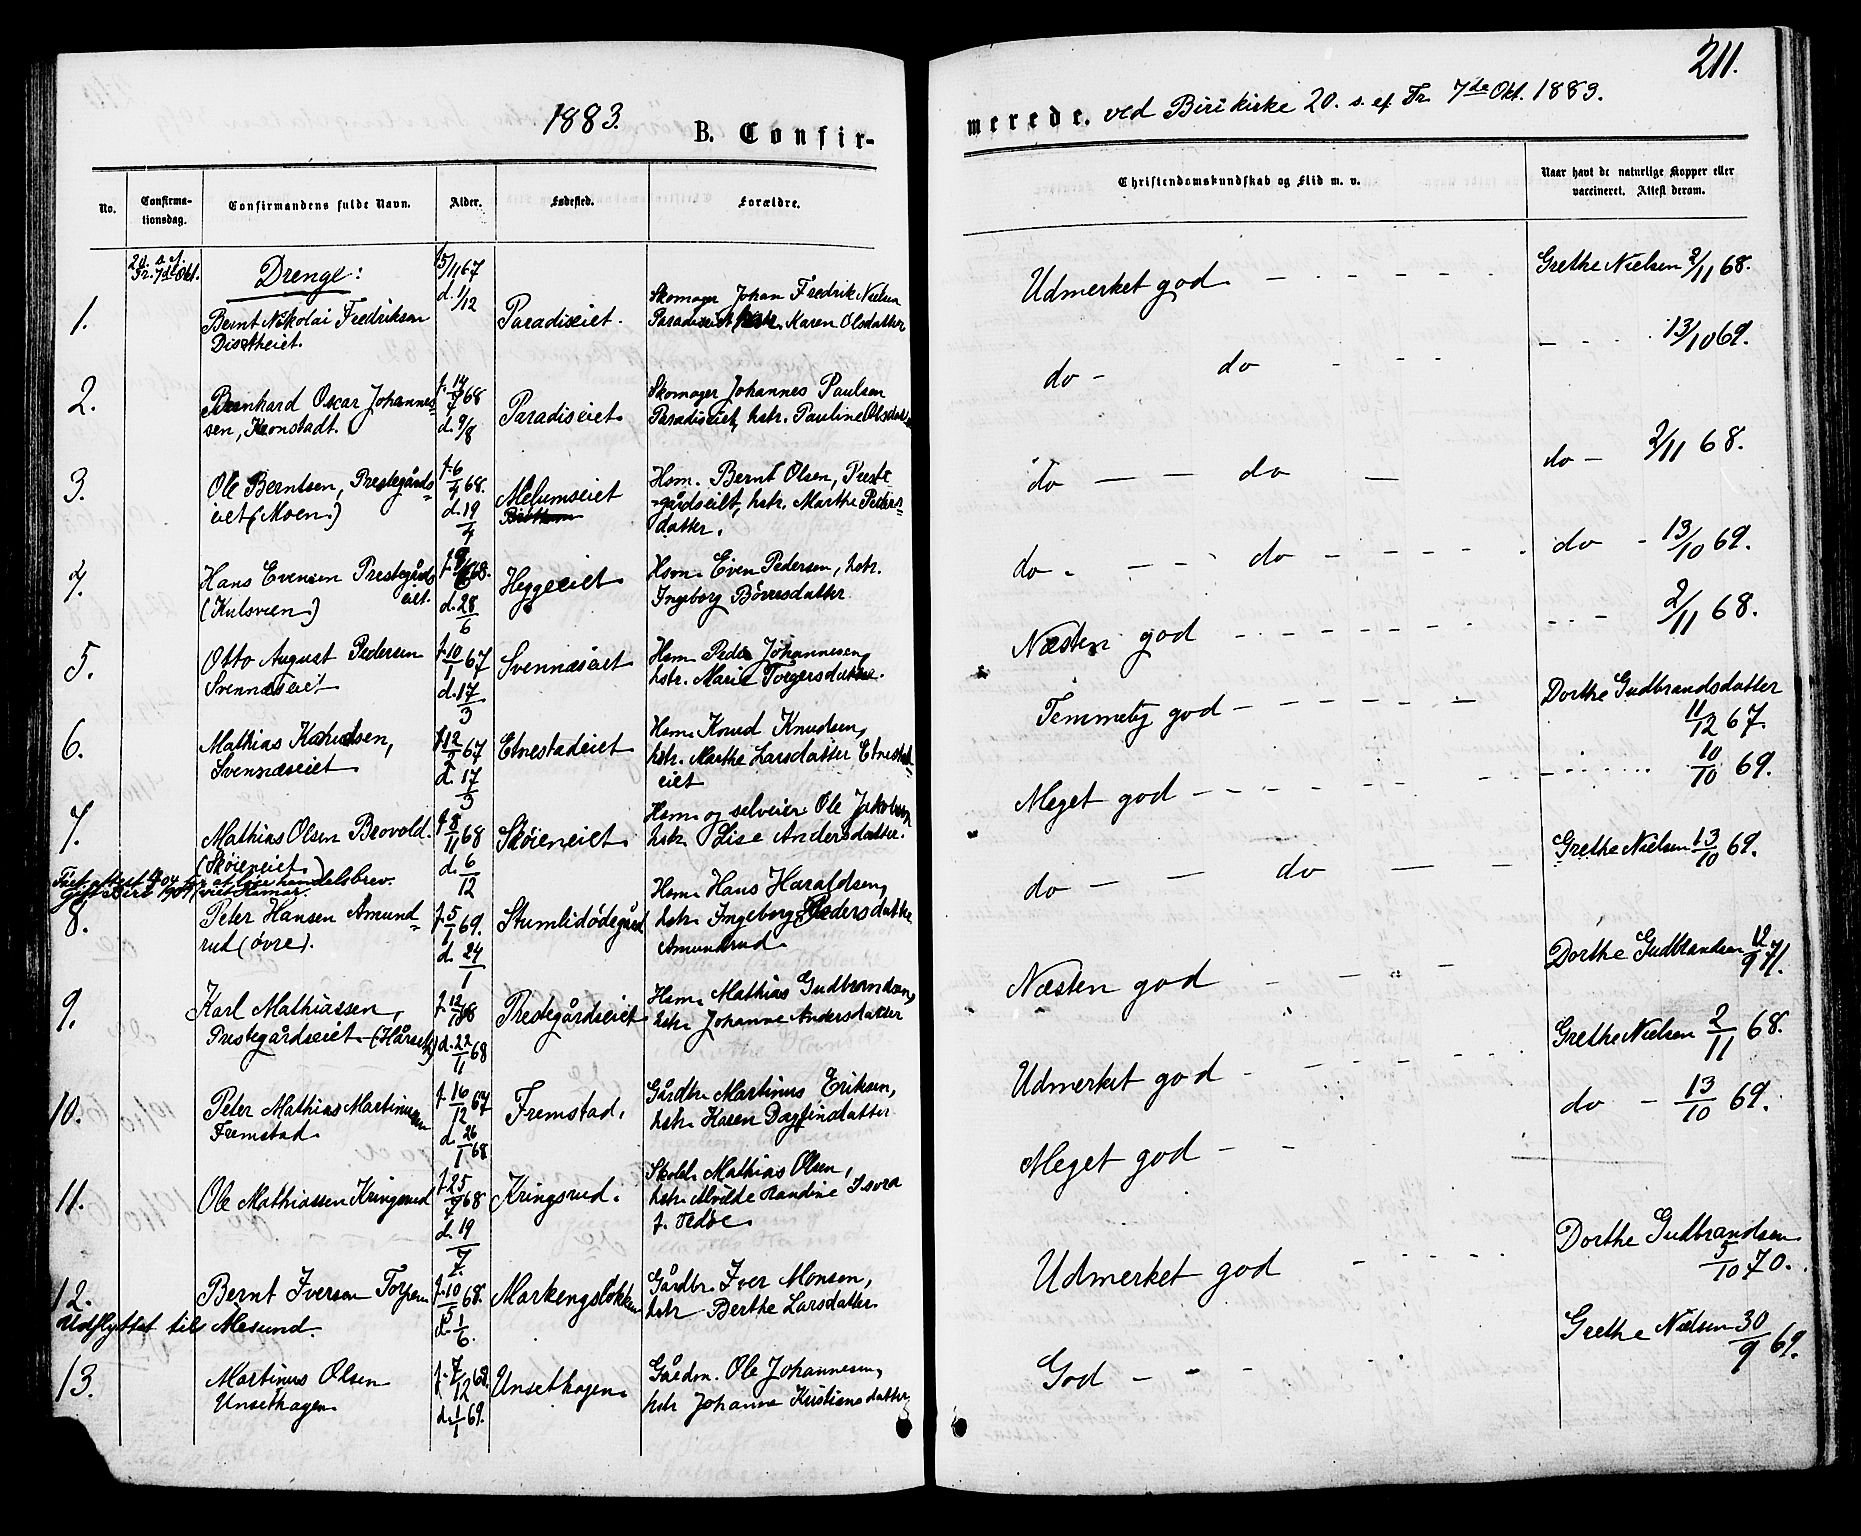 1883.
B. Confir-
No.
Confirma-
tionsdag.
Confirmandens fulde Navn.
Alder.
Fødested.
Forældre.
20. s. ef.
Tr. 7de Okt.
Drenge:
1.
Bernt Nikolai Fredriksen
15/11 67
d. 1/12
Paradiseiet.
Skomager Johan Fredrik Nielsen
Paradiseiet, hstr. Karen Olsdatter
2.
Bernhard Oscar Johannes-
sen, Kronstadt.
f. 14/7 68
d. 9/8
Paradiseiet.
Skomager Johannes Paulsen
Paradiseiet, hstr. Pauline Olsdatter
3.
Ole Berntsen, Prestegårds-
eiet (Moen.)
f. 6/4 68.
d. 19/4
Melumseiet
Hsm. Bernt Olsen, Preste-
gårdseiet, hstr. Marthe Peders-
datter.
4.
Hans Evensen Prestegårds
eiet.
(Kulsveen)
d. 28/6
Heggeeiet
Hsm. Even Pedersen, hstr.
Ingeborg Børresdatter
5.
Otto August Pedersen
Svennæseiet
f. 10/1 67
d. 17/3
Svennæseiet
Hsm. Peder Johannesen,
hstr. Marie Torgersdatter.
6.
Mathias Knudsen,
Svennæseiet
f. 12/2 67
d. 17/3
Etnestadeiet
Hsm. Knud Knudsen,
hstr. Marthe Larsdatter Etnestad-
eiet
7.
Mathias Olsen Brovold.
(Skøieneiet)
f. 8/11 68
d. 6/12
Skøieneiet.
Hsm. og selveier Ole Jakobsen
hstr. Lise Andersdatter.
handelsbrev.
8.
Peter Hansen Amund-
rud (øvre).
f. 5/1 69.
d. 24/1
Stumlidødegård
Hsm. Hans Haraldsen,
hstr. Ingeborg Pedersdatter
Amundrud
9.
Karl Mathiassen,
Prestegårdseiet
d. 22/11 68
Prestegårdseiet
Hsm. Mathias Gudbrandsen,
hstr. Johanne Andersdatter
10.
Peter Mathias Martinusen
Fremstad.
f. 16/12 67
d. 26/1 68
Fremstad.
Gårdbr. Martinus Eriksen,
hstr. Karen Dagfinsdatter
11.
Ole Mathiassen Kringsrud
d. 19/7
Kringsrud.
Skolel. Mathias Olsen,
hstr.
12.
Bernt Iversen Torpen
f. 10/5 68.
d. 1/6.
Markengsløkken
Gårdbr. Iver Monsen,
hstr Berthe Larsdatter.
Udflyttet til Ålesund.
13.
Martinus Olsen
Unsethagen
f. 7/12 68.
d. 1/1 69.
Unsethagen.
Gårdm. Ole Johannesen,
hstr Johanne Kristiansdatter
211.
merede. ved Biri kirke 20. s. ef Tr. 7de Okt. 1883.
Christendomskundskab og Flid m. v.
Naar havt de naturlige Kopper eller
vaccineret. Attest derom.
Udmerket god - - - - -
Grethe Nielsen 2/11 68.
do - do - - -
- - - - 13/10 69.
do - - do -
do - 2/11 68.
do - - - do - - - -
do - 13/10 69.
Næsten god - - - - - - -
- - - 2/11 68.
Temmelig god - - - - - -
Dorthe Gudbrandsdatter
11/12 67.
Meget god - - - - -
- - - - - 10/10 69.
do - - do - -
Grethe Nielsen 13/10 69.
Næsten god - - - -
Dorthe Gudbrandsen 12/9 71.
Udmerket god - - - - -
Grethe Nielsen 2/11 68.
Meget god - -
do - 13/10 69.
Udmerket god - - - - -
Dorthe Gudbrandsen
5/10 70.
God - - -
Grethe Nielsen 30/9 69.